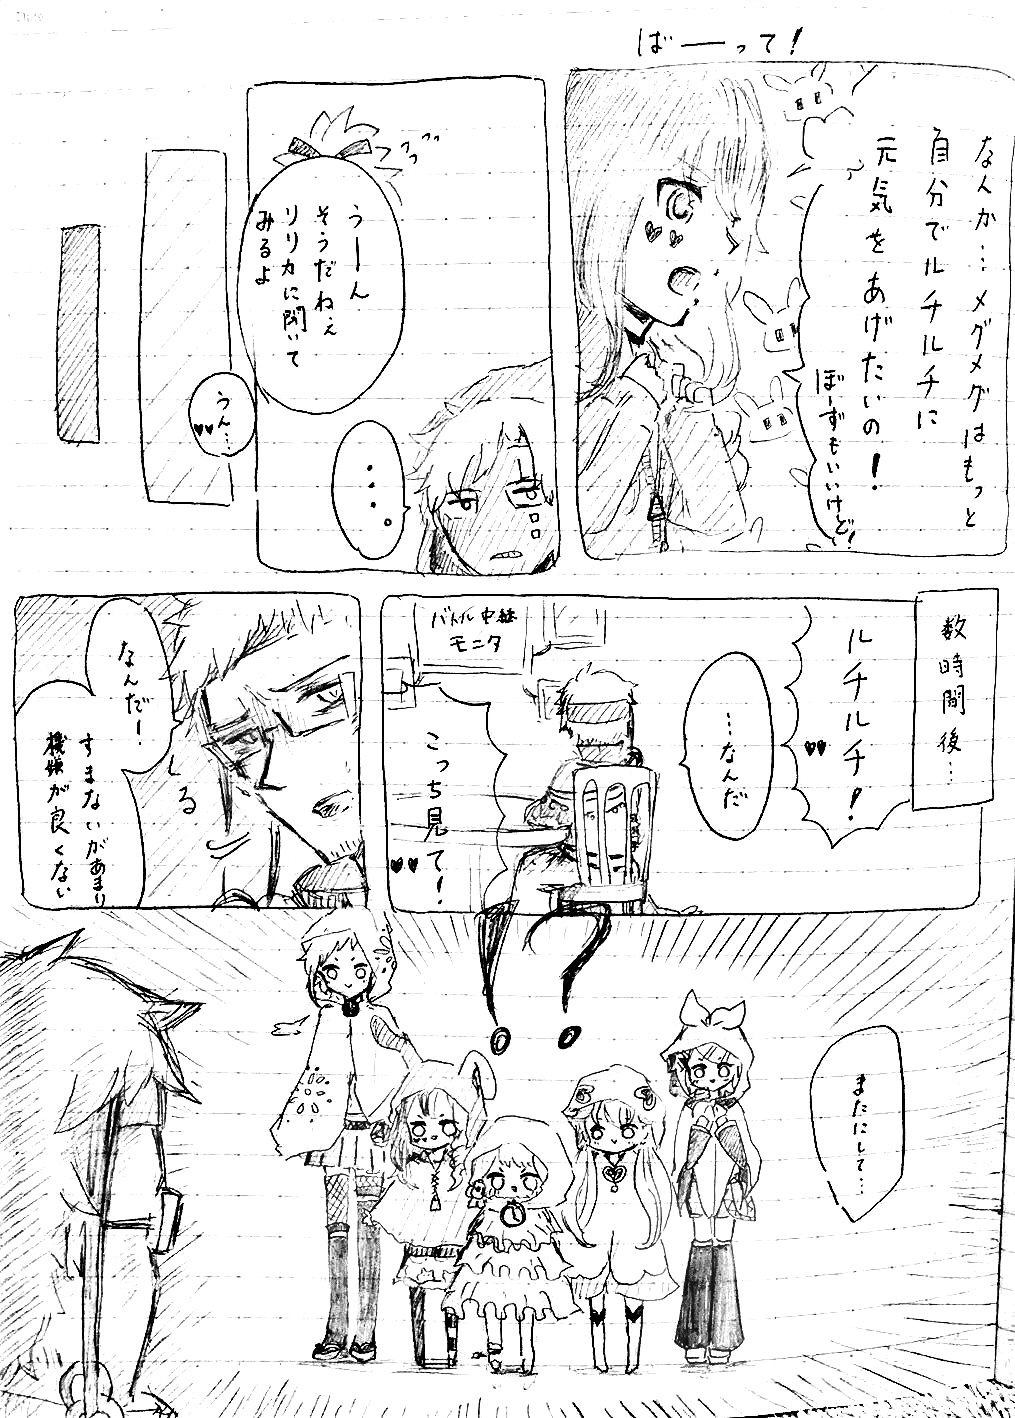 ばーって！
なんか…メグメグはもっと
自分でルチルチに
元気をあげたいの！
ぼーずもいいけど！
うーん
そうだねぇ
リリカに聞いて
みるよ
・・・。
うん…
数時間後…
ルチルチ！
…なんだ
こっち見て！
バトル中継
モニタ
なんだ！
すまないがあまり
機嫌が良くない
またにして…